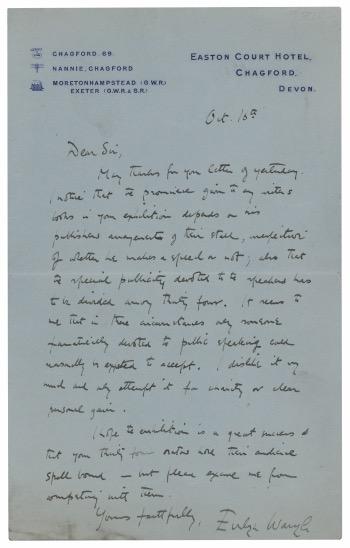 CHAGFORD. 69.
NANNIE, CHAGFORD
MORETONHAMPSTEAD (G.W.R)
EXETER (G.W.R & S.R.)
EASTON COURT HOTEL,
CHAGFORD,
DEVON.
Oct. 16th
Dear Sir,
Many thanks for your letter of yesterday.
I notice that the prominence given to any writer's
books in your exhibition depends on his
publishers arrangements of their stall, irrespective
of whether he makes a speech or not; also that
the special publicity devoted to the speakers has
to be divided among thirty four. It seems to
me that in these circumstances only someone
devoted to public speaking could
reasonably be expected to accept. I dislike it very
much and only attempt it for charity or clear
personal gain.
I hope the exhibition is a great success &
that your thirty four orators hold their audience
spell bound — but please excuse me from
competing with them.
Yours faithfully,
Evelyn Waugh